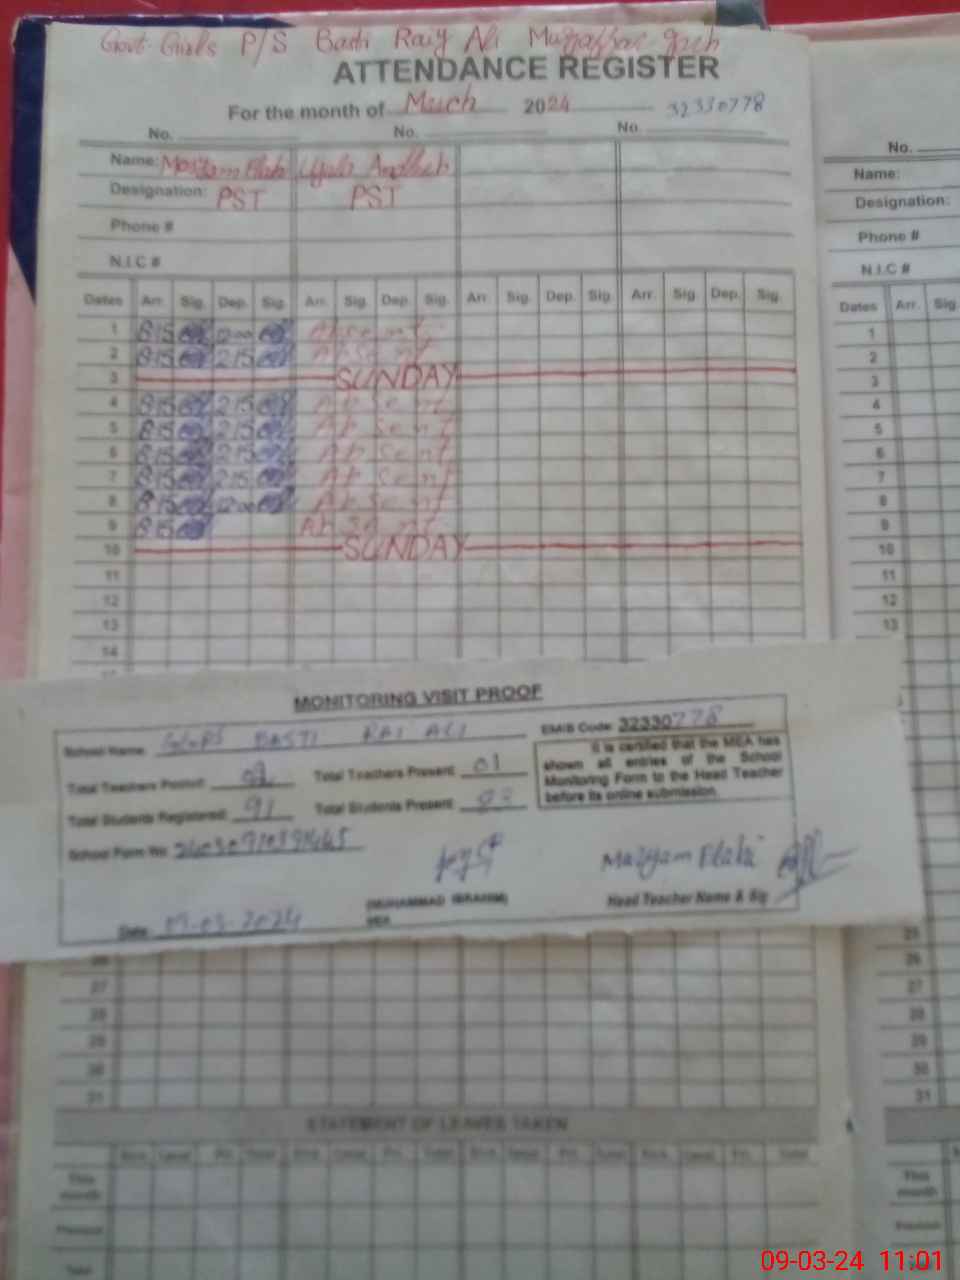 Govt. Girls P/S Basti Raiy Ali Muzaffar garh
ATTENDANCE REGISTER
For the month of March 2024 32330778
No. No. No.
Name: Maryam Elahi
Designation: PST PST
Phone #
N.I.C #
Dates Arr. Sig. Dep. Sig. Arr. Sig. Dep. Sig. Arr. Sig. Dep. Sig. Arr. Sig. Dep. Sig.
1 8 15 12 00 Absent
2 8 15 2 15 Absent
3 SUNDAY
4 8 15 2 15 Absent
5 8 15 2 15 Absent
6 8 15 2 15 Absent
7 8 15 2 15 Absent
8 8 15 12 00 Absent
9 8 15 Absent
10 SUNDAY
11
12
13
14
MONITORING VISIT PROOF
School Name: GGPS BASTI RAI ALI EMIS Code: 32330778
Total Teachers Posted: 02 Total Teachers Present: 01
Total Students Registered: 91 Total Students Present:
It is certified that the MEA has
shown all entries of the School
Monitoring Form to the Head Teacher
before its online submission.
School Form No:
Maryam Elahi
(MUHAMMAD IBRAHIM)
MEA
Head Teacher Name & Sig
Date: 09-03-2024
26
27
28
29
30
31
STATEMENT OF LEAVES TAKEN
This
month
Previous
Total
No.
Name:
Designation:
Phone #
N.I.C #
Dates Arr. Sig.
1
2
3
4
5
6
7
8
9
10
11
12
13
25
26
27
28
29
30
31
This
month
Previous
09-03-24 11:01